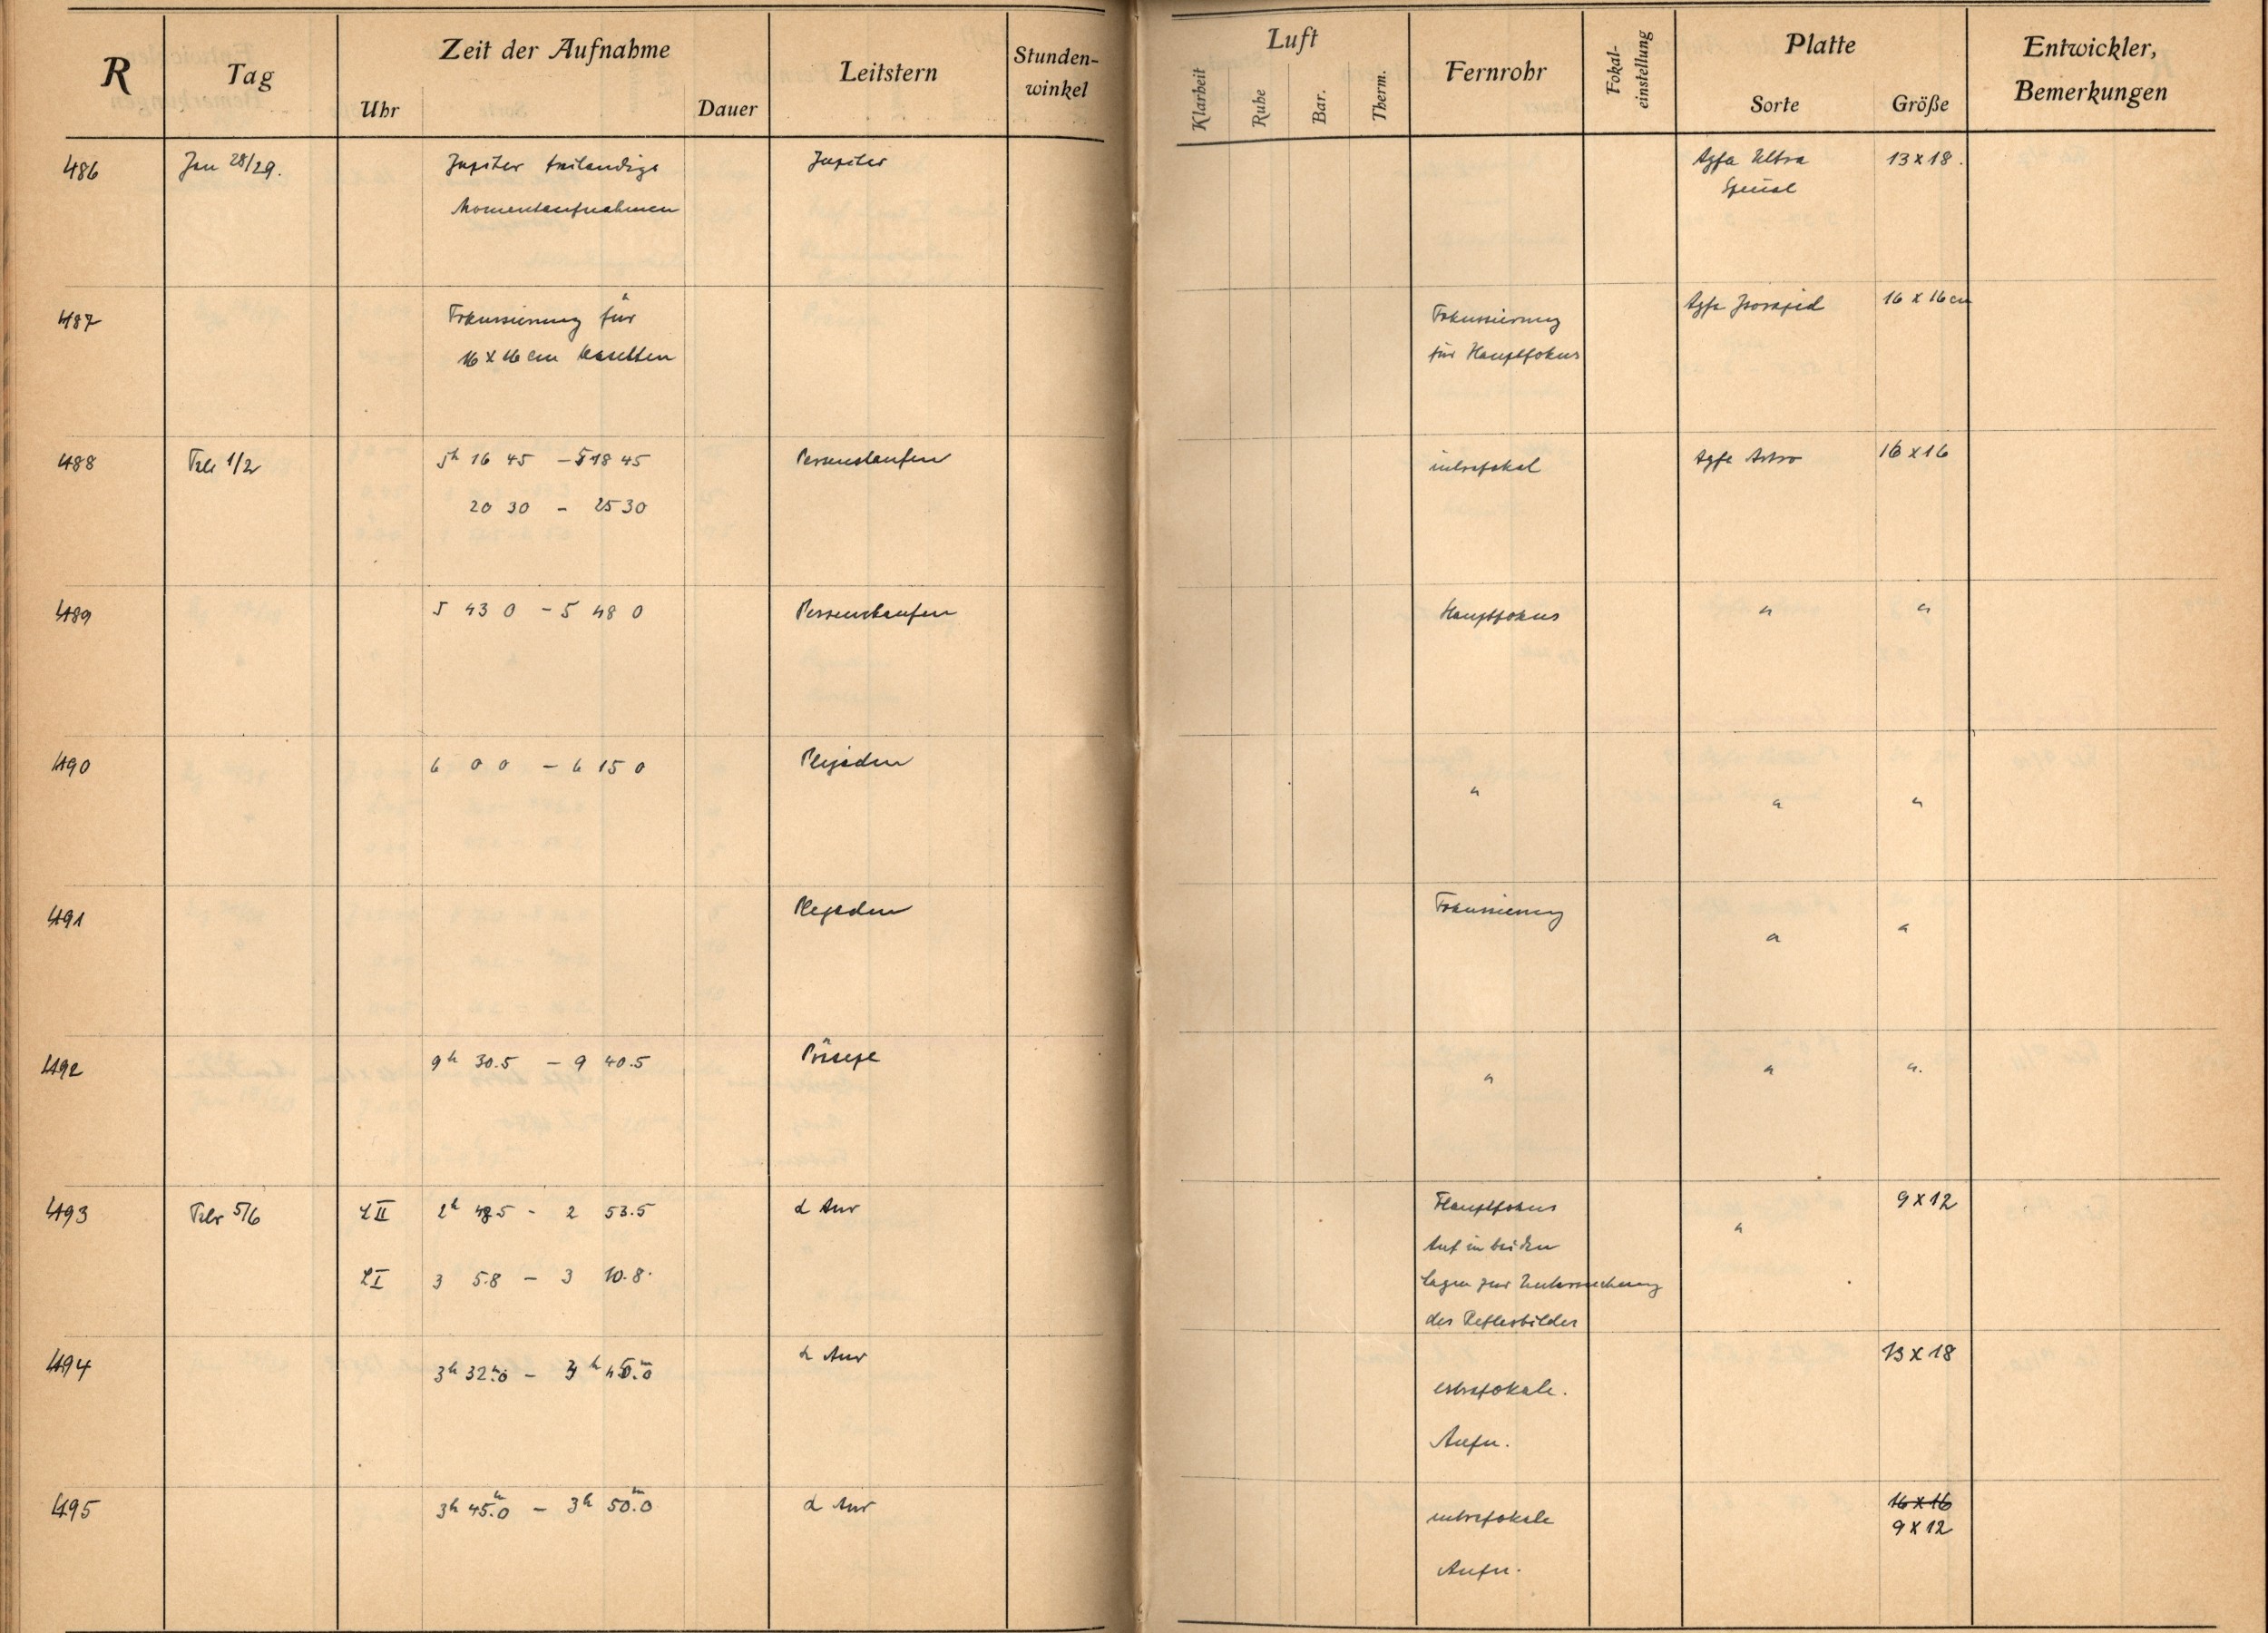 R Tag Zeit der Aufnahme Leitstern Stunden-winkel Luft Fernrohr Fokal-einstellung Platte Entwickler, Bemerkungen
Uhr Dauer Klarheit Ruhe Bar. Therm. Sorte Größe
486 Jan 28/29. Jupiter freihändige Jupiter Agfa Ultra 13 x 18.
Momentaufnahmen Spezial
487 Fokussierung für Fokussierung Agfa Isorapid 16 x 16 cm
16 x 16 cm Kasetten für Hauptfokus
488 Febr 1/2 5h 16 45 - 5 18 45 Perseushaufen intrafokal Agfa Astro 16 x 16
20 30 - 25 30
489 5 43 0 - 5 48 0 Perseushaufen Hauptfokus " "
490 6 0 0 - 6 15 0 Plejaden " " "
491 Plejaden Fokussierung " "
492 9h 30.5 - 9 40.5 Präsepe " " ".
493 Febr 5/6 L II 2h 48.5 - 2 53.5 α Aur Hauptfokus " 9 x 12
Auf in beiden
L I 3 5.8 - 3 10.8. Lagen zur Untersuchung
der Reflexbilder
494 3h 32m.0 - 3h 40m.0 α Aur extrafokale. 13 x 18
Aufn.
495 3h 45m.0 - 3h 50m.0 α Aur intrafokale 16 x 16
9 x 12
Aufn.